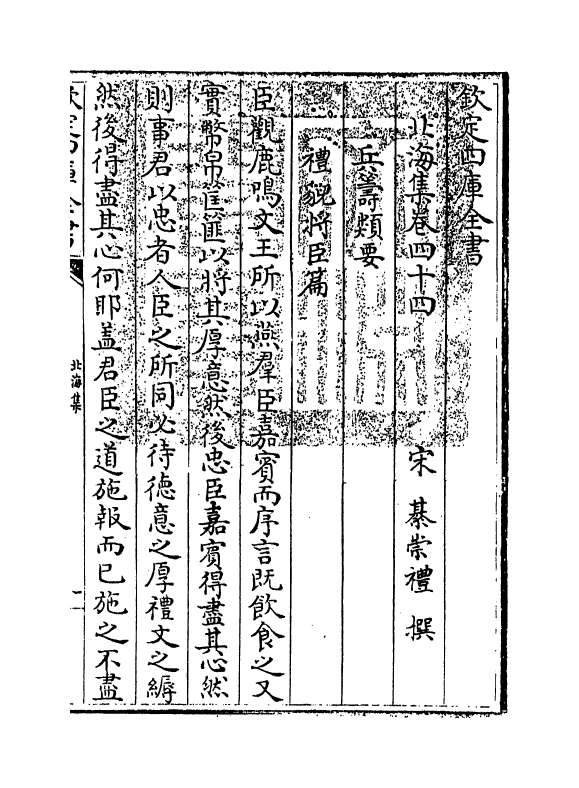 欽定四庫全書
北海集卷四十四
宋 綦崇禮 撰
兵籌類要
禮貌將臣篇
臣觀鹿鳴文王所以燕羣臣嘉賓而序言既飲食之又
實幣帛筐篚以將其厚意然後忠臣嘉賓得盡其心然
則事君以忠者人臣之所同必待德意之厚禮文之縟
然後得盡其心何耶蓋君臣之道施報而已施之不盡
欽定四庫全書
北海集
一